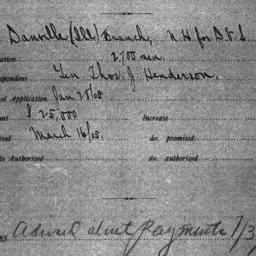 Danville (Ills) Branch, N H for D V S
ation 2,700 men.
pondent Gen Thos. J Henderson.
of Application Jan 25/05
unt $ 25,000 Increase
ised March 16/05. do. promised
ts Authorized do. authorized
es Advised about Payments 7/3